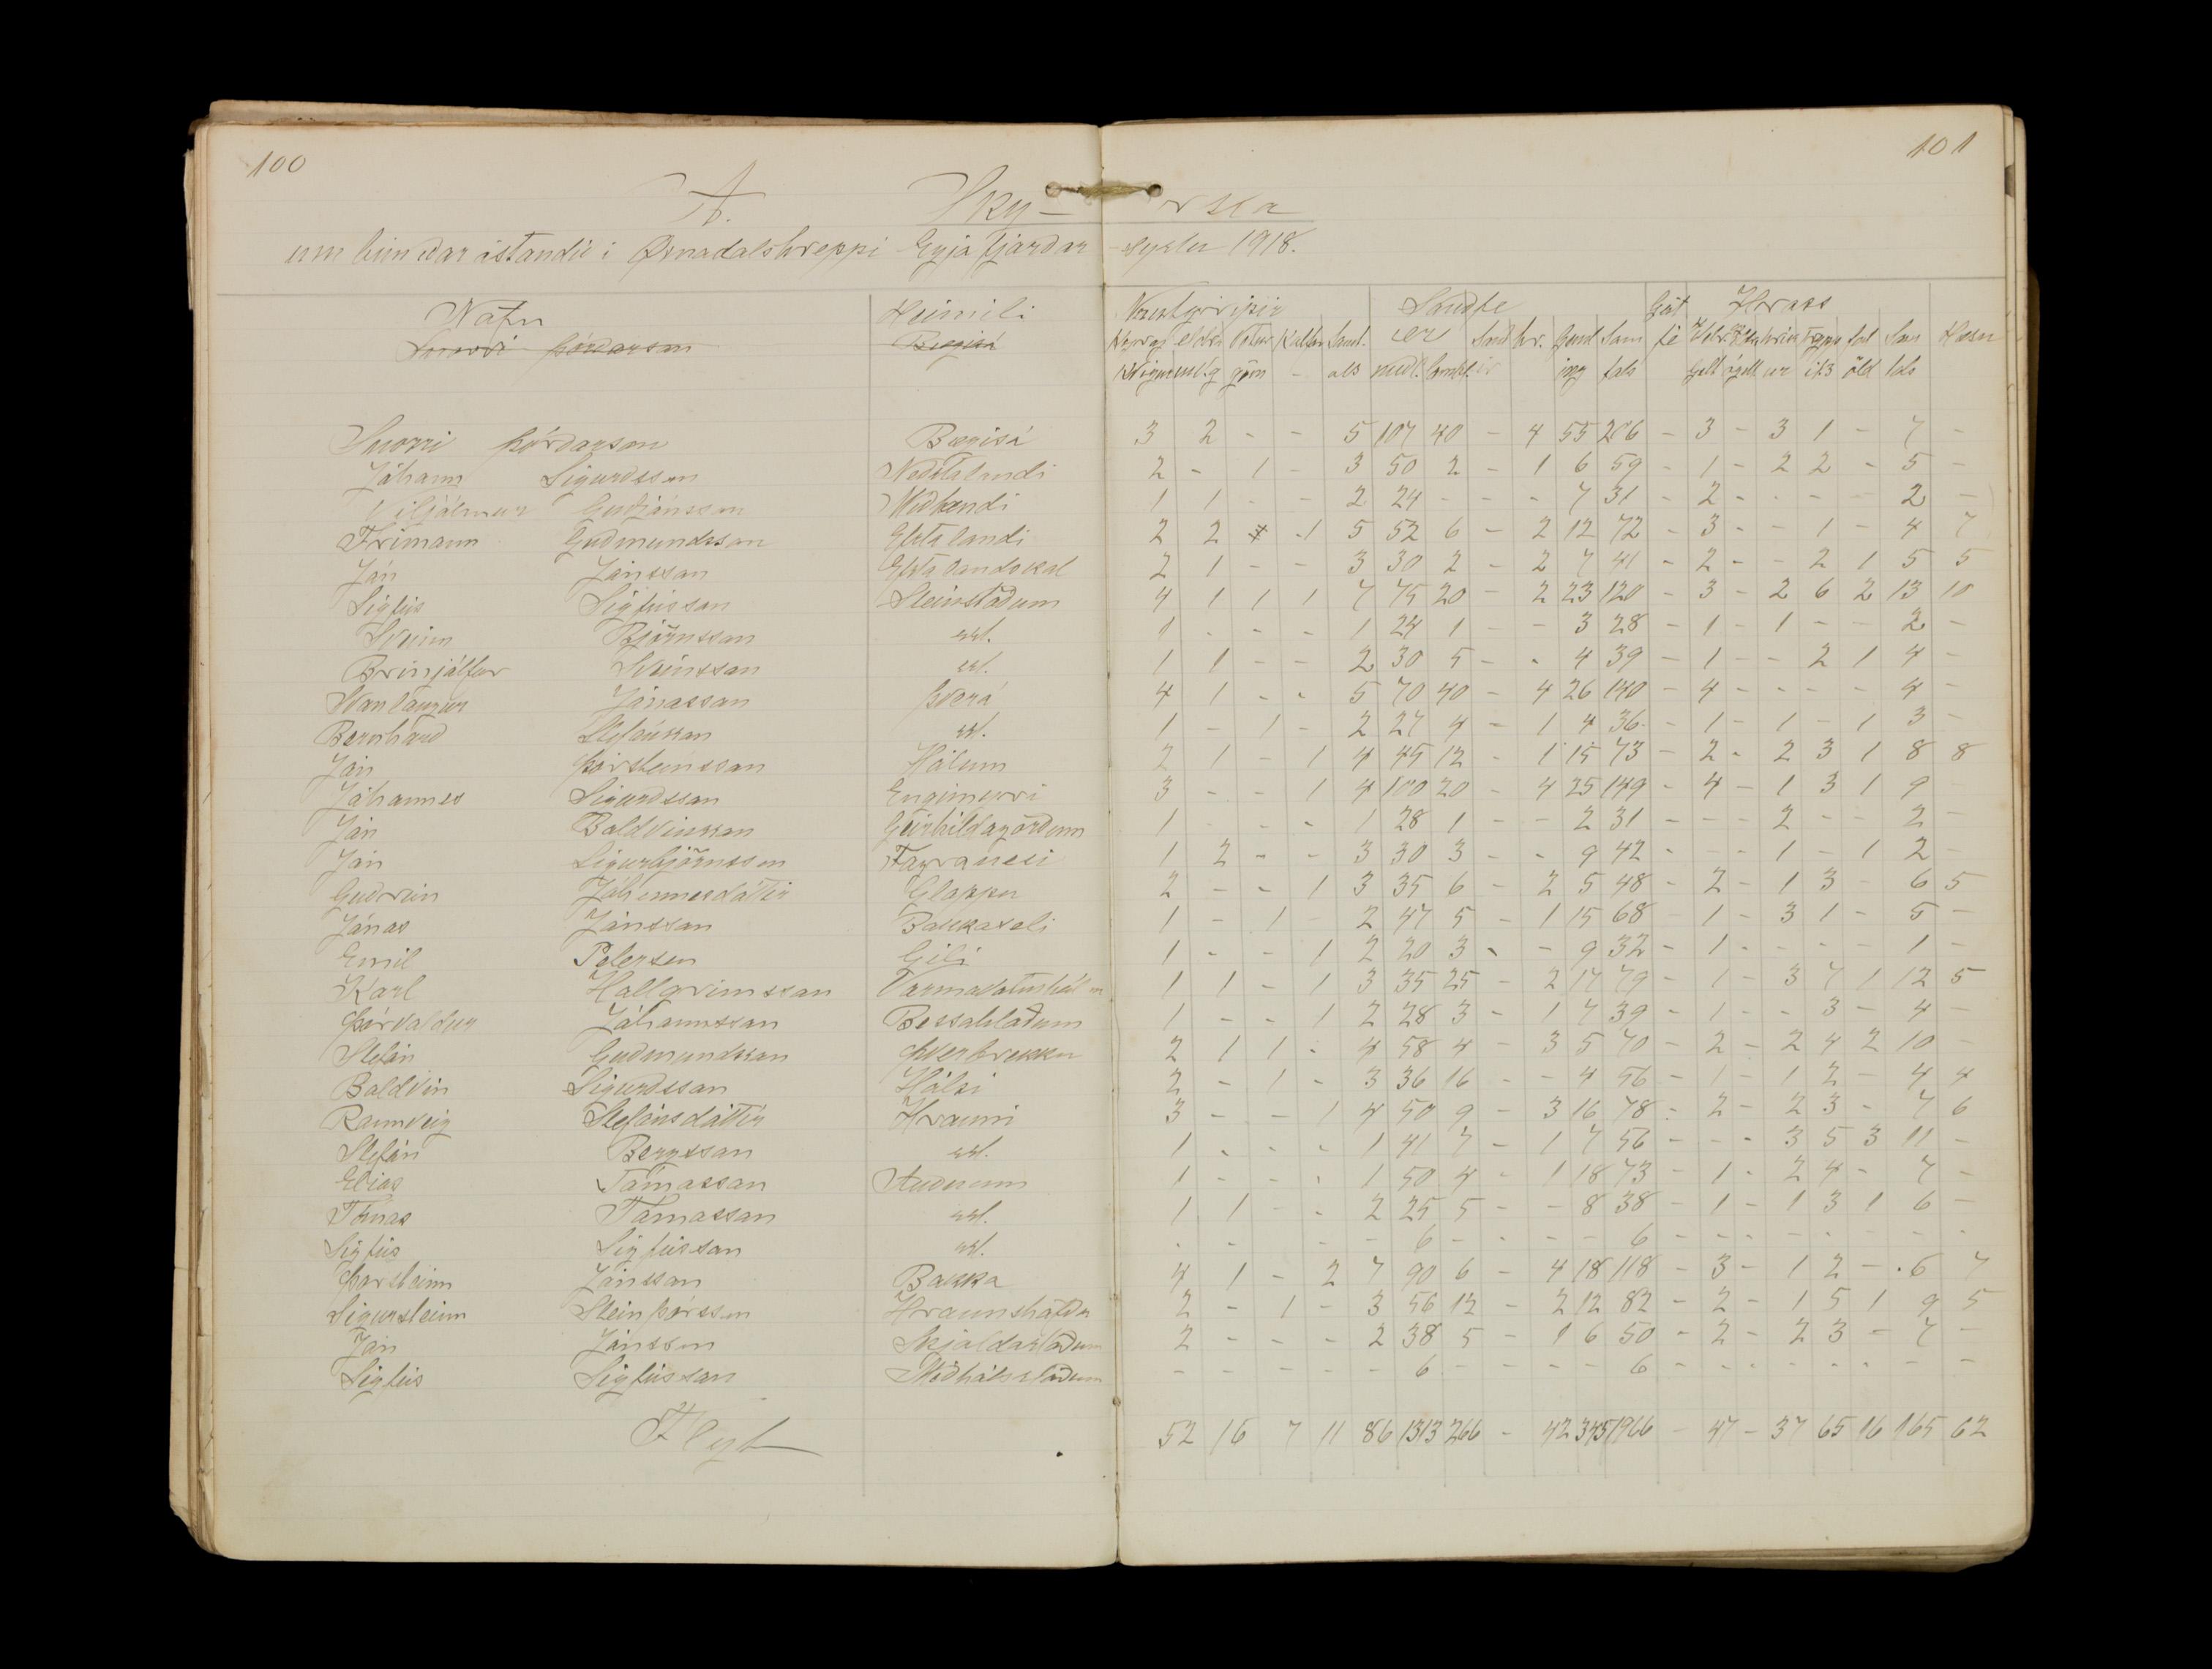 100
101
A. Sky-rsla
um búnaðar ástandið i Öxnadalshreppi Eyjafjarðar sýslu 1918.
Nafn Heimili Nautgripir Sauðfe Hross
Snorri Þórðarson Bægisá
Hæsn
Snorri Þórðarson Bægisá 3 2 - - 5 107 40 - 4 55 206 - 3 - 3 1 - 7 -
Jóhann Sigurdsson Neðstalandi 2 - 1 - 3 50 2 - 1 6 59 - 1 - 2 2 - 5 -
Viljálmur Guðjónsson Miðlandi 1 1 - - 2 24 - - - 7 31 - 2 - - - - 2 -
Frimann Guðmundsson Efstalandi 2 2 - 1 5 52 6 - 2 12 72 - 3 - - 1 - 4 7
Jón Jónsson Efstalandskot 2 1 - - 3 30 2 - 2 7 41 - 2 - - 2 1 5 5
Sigfús Sigfússon Steinstöðum 4 1 1 1 7 75 20 - 2 23 120 - 3 - 2 6 2 13 10
Sveinn Björnsson sst. 1 - - - 1 24 1 - - 3 28 - 1 - 1 - - 2 -
Brinjólfur Sveinsson sst. 1 1 - - 2 30 5 - - 4 39 - 1 - - 2 1 4 -
Jónasson Þverá 4 1 - - 5 70 40 - 4 26 140 - 4 - - - - 4 -
Bernharð Stefánsson sst. 1 - 1 - 2 27 4 - 1 4 36 - 1 - 1 - 1 3 -
Jón Þorsteinsson Hólum 2 1 - 1 4 45 12 - 1 15 73 - 2 - 2 3 1 8 8
Jóhannes Sigurdsson Engimyri 3 - - 1 4 100 20 - 4 25 149 - 4 - 1 3 1 9 -
Jón Baldvinsson Geirhildagörðum 1 - - - 1 28 1 - - 2 31 - - - 2 - - 2 -
Jón Sigurbjörnsson Fagranesi 1 2 - - 3 30 3 - - 9 42 - - - 1 - 1 2 -
Guðrún Jóhannesdóttir Gloppu 2 - - 1 3 35 6 - 2 5 48 - 2 - 1 3 - 6 5
Jónas Jónsson Bakkaseli 1 - 1 2 47 5 - 1 15 68 - 1 - 3 1 - 5 -
Emil Petersen Gili 1 - - 1 2 20 3 - - 9 32 - 1 - - - - 1 -
Karl Hallgrimsson Varmavatnshól 1 1 - 1 3 35 25 - 2 17 79 - 1 - 3 7 1 12 5
Þórvaldur Jóhannsson Bessahlöðum 1 - - 1 2 28 3 - 1 7 39 - 1 - - 3 - 4 -
Stefán Guðmundsson Þverbrekku 2 1 1 - 4 58 4 - 3 5 70 - 2 - 2 4 2 10 -
Baldvin Sigurdsson Hálsi 2 - 1 - 3 36 16 - - 4 56 - 1 - 1 2 - 4 4
Rannveig Stefánsdóttir Hrauni 3 - - 1 4 50 9 - 3 16 78 - 2 - 2 3 - 7 6
Stefán Bergsson sst. 1 - - - 1 41 7 - 1 7 56 - - - 3 5 3 11 -
Elias Tómasson Auðnum 1 - - - 1 50 4 - 1 18 73 - 1 - 2 4 - 7 -
Tómas Tómasson sst. 1 1 - - 2 25 5 - - 8 38 - 1 - 1 3 1 6 -
Sigfús Sigfússon sst. - - - - 6 - - - - 6 - - - - - - - -
Þorsteinn Jónsson Bakka 4 1 - 2 7 90 6 - 4 18 118 - 3 - 1 2 - 6 7
Sigursteinn Steinþórsson Hraunshöfða 2 - 1 - 3 56 12 - 2 12 82 - 2 - 1 5 1 9 5
Jón Jónsson Skjaldarstöðum 2 - - - 2 38 5 - 1 6 50 - 2 - 2 3 - 7 -
Sigfús Sigfússon Miðhálsstöðum - - - - - 6 - - - - 6 - - - - - - - -
Flyt 52 16 7 11 86 1313 266 - 42 345 1966 - 47 - 37 65 16 165 62